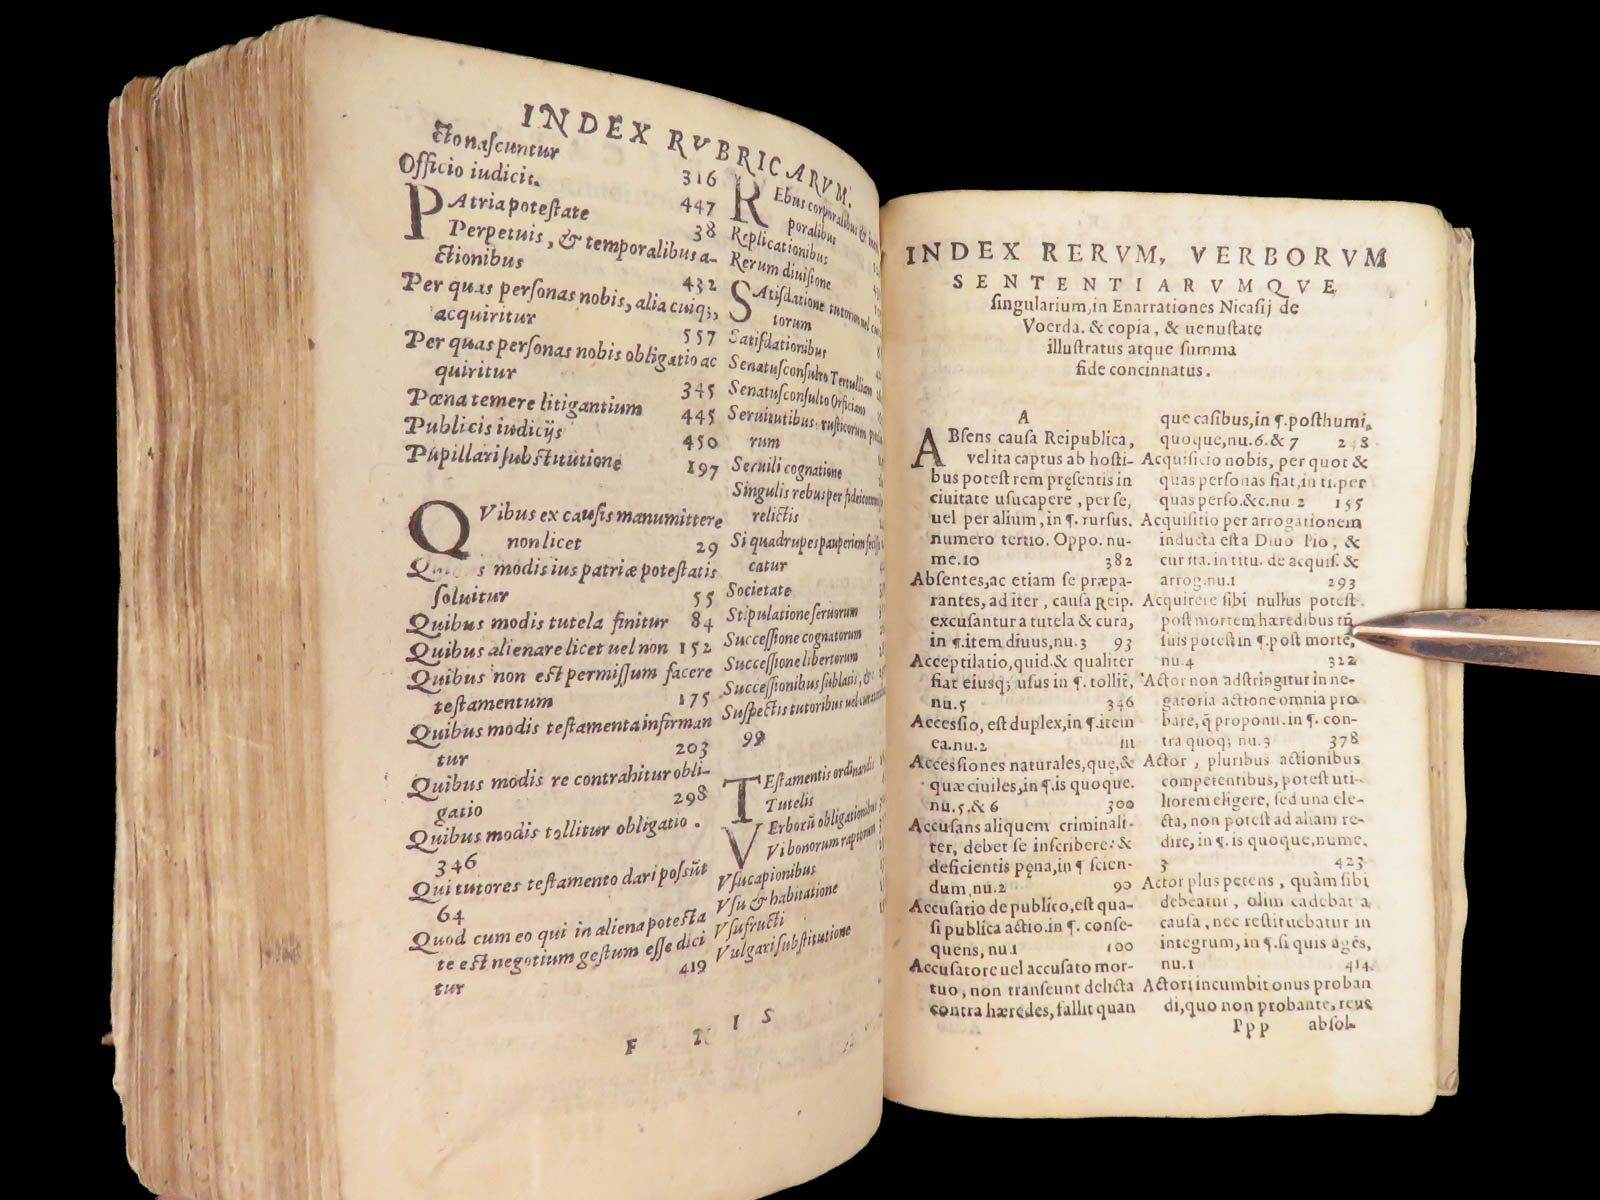 INDEX RVBRICARVM.
cto nascuntur 316
Officio iudicis. 447
PAtria potestate 38
Perpetuis, & temporalibus a-
ctionibus 432
Per quas personas nobis, alia cuiq;,
acquiritur 557
Per quas personas nobis obligatio ac
quiritur 345
Pœna temere litigantium 445
Publicis iudicijs 450
Pupillari substitutione 197
QVibus ex causis manumittere
non licet 29
modis ius patriæ potestatis
soluitur 55
Quibus modis tutela finitur 84
Quibus alienare licet uel non 152
Quibus non est permissum facere
testamentum 175
Quibus modis testamenta infirman
tur 203
Quibus modis re contrahitur obli-
gatio 298
Quibus modis tollitur obligatio.
346
Qui tutores testamento dari possũt
64
Quod cum eo qui in aliena potesta
te est negotium gestum esse dici
tur 419
REbus corporalibus &
poralibus
Replicationibus
Rerum diuisione
SAtisdatione tutorum uel
torum
Satisdationibus
Senatusconsulto Tertulliano
Senatusconsulto Orficiano
Seruitutibus rusticorum
rum
Seruili cognatione
Singulis rebus per
relictis
Si quadrupes pauperiem
catur
Societate
Stipulatione seruorum
Successione cognatorum
Successione libertorum
Successionibus sublatis,
Suspectis tutoribus uel
99
TEstamentis ordinandis
Tutelis
VErborũ obligationibus
Vi bonorum raptorum
Vsucapionibus
Vsu & habitatione
Vsufructi
Vulgari substitutione
F I S
INDEX RERVM, VERBORVM
SENTENTIARVMQVE
singularium, in Enarrationes Nicasij de
Voerda. & copia, & uenustate
illustratus atque summa
fide concinnatus.
A
ABsens causa Reipublica,
vel ita captus ab hosti-
bus potest rem pręsentis in
ciuitate usucapere, per se,
uel per alium, in ¶. rursus.
numero tertio. Oppo. nu-
me.10 382
Absentes, ac etiam se præpa-
rantes, ad iter, causa Reip.
excusantur a tutela & cura,
in ¶.item diuus, nu.3 93
Acceptilatio, quid. & qualiter
fiat eiusq; usus in ¶. tollit̃,
nu.5 346
Accessio, est duplex, in ¶.item
ea.nu.2 111
Accessiones naturales, que, &
quæ ciuiles, in ¶.is quoque.
nu.5.& 6 300
Accusans aliquem criminali-
ter, debet se inscribere: &
deficientis pęna, in ¶ scien-
dum, nu.2 90
Accusatio de publico, est qua-
si publica actio. in ¶. conse-
quens, nu.1 100
Accusatore uel accusato mor-
tuo, non transeunt delicta
contra hæredes, fallit quan
que casibus, in ¶. posthumi,
quoque, nu.6. & 7
Acquisicio nobis, per quot &
quas personas fiat, in ti. per
quas perso.&c.nu.2 155
Acquisitio per arrogationem
inducta est a Diuo Pio, &
cur ita. in titu. de acquis. &
arrog.nu.1 293
Acquirere sibi nullus potest
post mortem hæredibus tñ
suis potest in ¶.post morte,
nu.4 322
Actor non adstringitur in ne-
gatoria actione omnia pro
bare, q̃ proponit. in ¶. con-
tra quoq; nu.3 378
Actor, pluribus actionibus
competentibus, potest uti-
liorem eligere, sed una ele-
cta, non potest ad aliam re-
dire, in ¶. is quoque, nume.
3 423
Actor plus petens, quàm sibi
debeatur, olim cadebat a
causa, nec restituebatur in
integrum, in ¶.si quis agẽs,
nu.1 414
Actori incumbit onus proban
di, quo non probante, reus
Ppp absol-